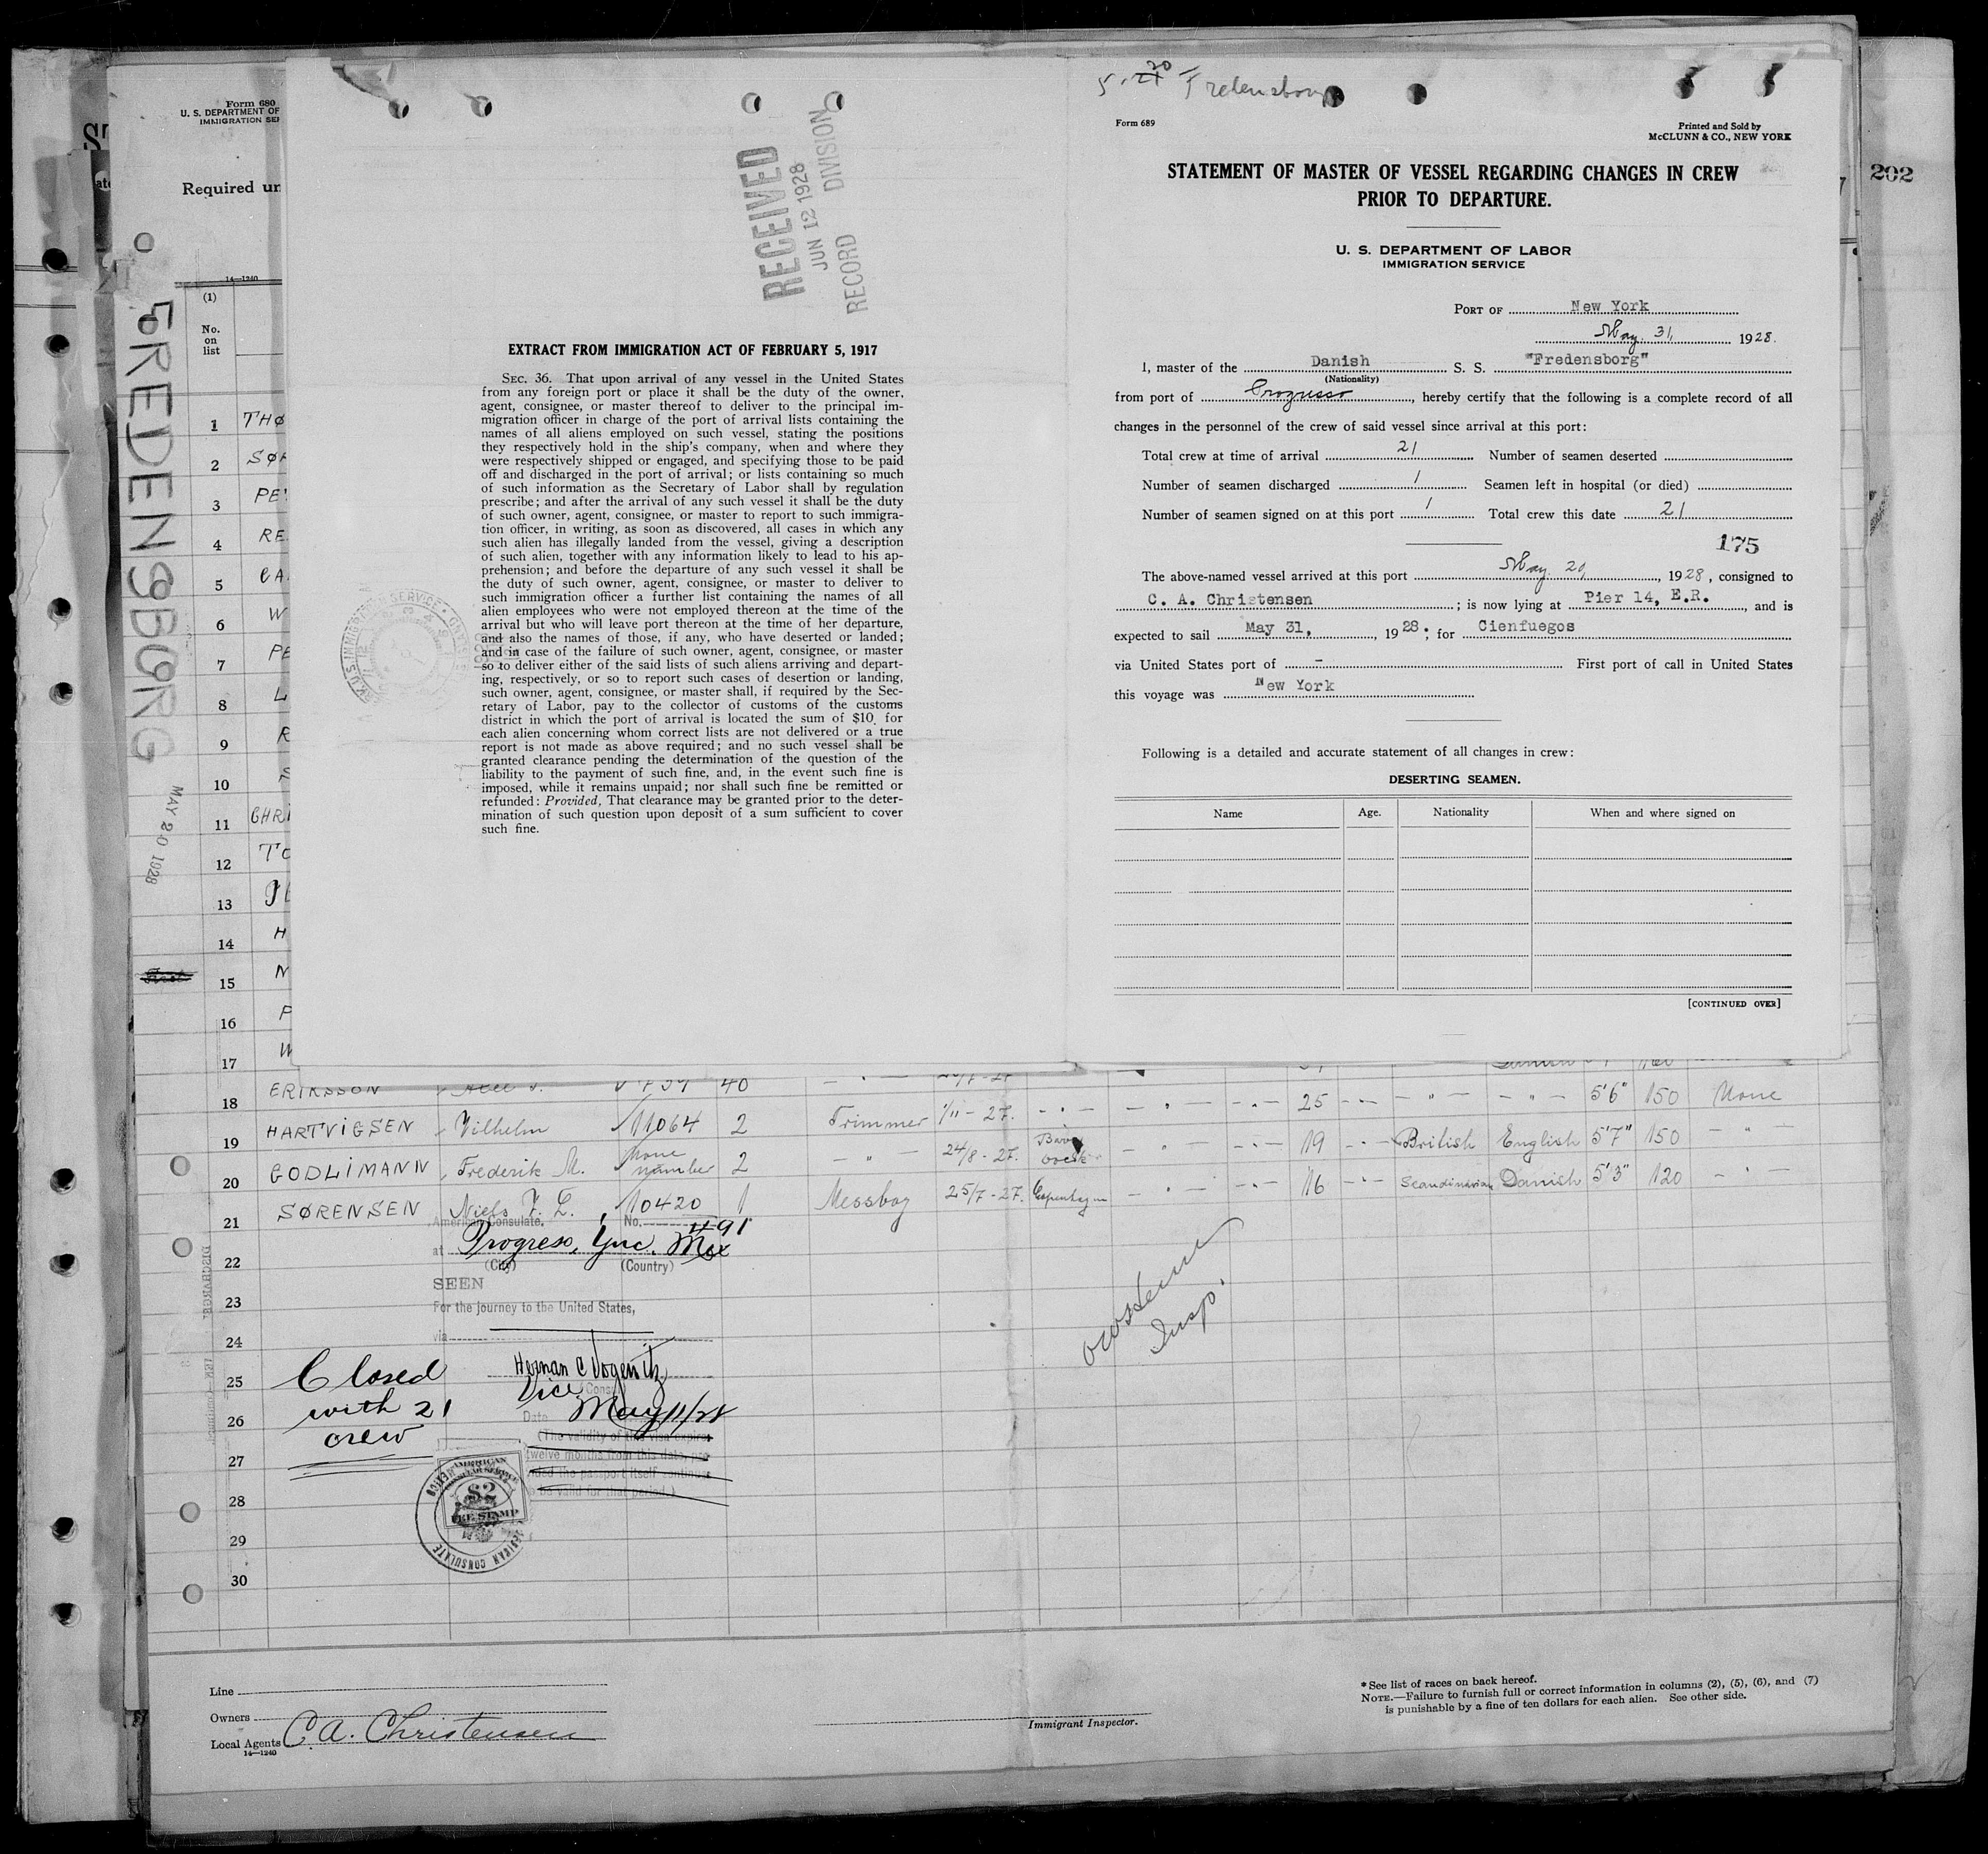 Form 680
U. S. DEPARTMENT OF
IMMIGRATION SE
Required un
14—1240
(1)
No.
on
list
FREDENSBORG
MAY 20 1928
1 THØ
2 SØ
3 PE
4 RE
5 CA
6 W
7 PE
8 L
9 R
10 S
11 CHRI
12 TO
13
14 H
15 N
16 P
17 W
RECEIVED
JUN 12 1928
RECORD DIVISION
EXTRACT FROM IMMIGRATION ACT OF FEBRUARY 5, 1917
SEC. 36. That upon arrival of any vessel in the United States
from any foreign port or place it shall be the duty of the owner,
agent, consignee, or master thereof to deliver to the principal im-
migration officer in charge of the port of arrival lists containing the
names of all aliens employed on such vessel, stating the positions
they respectively hold in the ship's company, when and where they
were respectively shipped or engaged, and specifying those to be paid
off and discharged in the port of arrival; or lists containing so much
of such information as the Secretary of Labor shall by regulation
prescribe; and after the arrival of any such vessel it shall be the duty
of such owner, agent, consignee, or master to report to such immigra-
tion officer, in writing, as soon as discovered, all cases in which any
such alien has illegally landed from the vessel, giving a description
of such alien, together with any information likely to lead to his ap-
prehension; and before the departure of any such vessel it shall be
the duty of such owner, agent, consignee, or master to deliver to
such immigration officer a further list containing the names of all
alien employees who were not employed thereon at the time of the
arrival but who will leave port thereon at the time of her departure,
and also the names of those, if any, who have deserted or landed;
and in case of the failure of such owner, agent, consignee, or master
so to deliver either of the said lists of such aliens arriving and depart-
ing, respectively, or so to report such cases of desertion or landing,
such owner, agent, consignee, or master shall, if required by the Sec-
retary of Labor, pay to the collector of customs of the customs
district in which the port of arrival is located the sum of $10 for
each alien concerning whom correct lists are not delivered or a true
report is not made as above required; and no such vessel shall be
granted clearance pending the determination of the question of the
liability to the payment of such fine, and, in the event such fine is
imposed, while it remains unpaid; nor shall such fine be remitted or
refunded: Provided, That clearance may be granted prior to the deter-
mination of such question upon deposit of a sum sufficient to cover
such fine.
5.20 Fredensborg
Form 689
Printed and Sold by
McCLUNN & CO., NEW YORK
202
STATEMENT OF MASTER OF VESSEL REGARDING CHANGES IN CREW
PRIOR TO DEPARTURE.
U. S. DEPARTMENT OF LABOR
IMMIGRATION SERVICE
PORT OF New York
May. 31, 1928.
I, master of the Danish S. S. "Fredensborg"
(Nationality)
from port of Progresso, hereby certify that the following is a complete record of all
changes in the personnel of the crew of said vessel since arrival at this port:
Total crew at time of arrival 21 Number of seamen deserted
Number of seamen discharged 1 Seamen left in hospital (or died)
Number of seamen signed on at this port 1 Total crew this date 21
175
The above-named vessel arrived at this port May 20, 1928, consigned to
C. A. Christensen ; is now lying at Pier 14, E.R. , and is
expected to sail May 31, , 1928; for Cienfuegos
via United States port of - First port of call in United States
this voyage was New York
Following is a detailed and accurate statement of all changes in crew:
DESERTING SEAMEN.
Name Age. Nationality When and where signed on
[CONTINUED OVER]
18 ERIKSSON Axel 40
19 HARTVIGSEN Vilhelm 11064 2 Trimmer 1/11-27. - " - - " - - " - 25 - " - - " - - " - 5'6" 150 None
20 GODLIMANN Frederik M. None number 2 - " - 24/8-27. - " - - " - 19 - " - British English 5'7" 150 - " -
21 SØRENSEN Niels F. L. 10420 1 Messboy 25/7-27. Copenhagen - " - - " - 16 - " - Scandinavian Danish 5'3" 120 - " -
22
23
24
25
26
27
28
29
30
American Consulate, No. 491
at Progreso, Yuc. Mex
(City) (Country)
SEEN
For the journey to the United States,
via
Herman C Vogenitz
Vice Consul
Date May 11/28
(The validity of this visa expires
twelve months from this date, pro-
vided the passport itself continues
to be valid for that period.)
Closed
with 21
crew
AMERICAN
CONSULAR SERVICE
$2
FEE STAMP
AMERICAN CONSULATE
Insp.
Line
Owners
Local Agents C.A. Christensen
14—1240
Immigrant Inspector.
* See list of races on back hereof.
NOTE.—Failure to furnish full or correct information in columns (2), (5), (6), and (7)
is punishable by a fine of ten dollars for each alien. See other side.